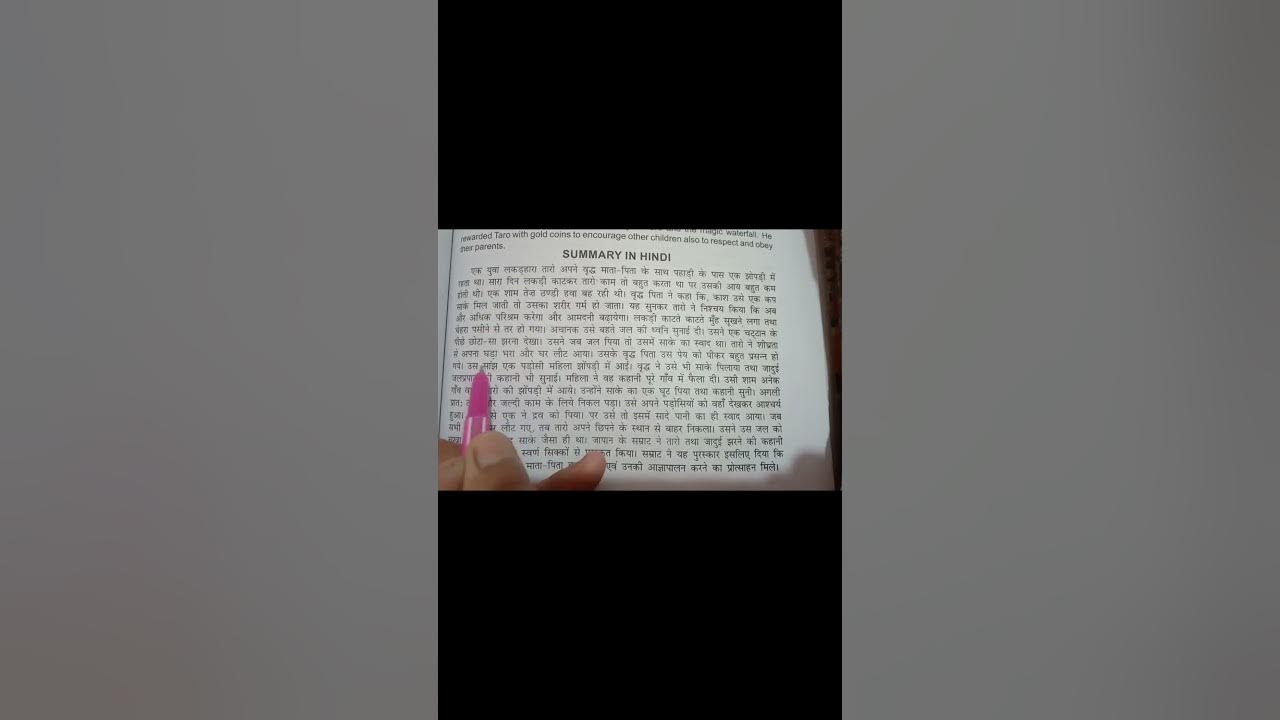 the magic waterfall. He
rewarded Taro with gold coins to encourage other children also to respect and obey
their parents.
SUMMARY IN HINDI
एक युवा लकड़हारा तारो अपने वृद्ध माता-पिता के साथ पहाड़ी के पास एक झोपड़ी में
रहता था। सारा दिन लकड़ी काटकर तारो काम तो बहुत करता था पर उसकी आय बहुत कम
होती थी। एक शाम तेज ठण्डी हवा बह रही थी। वृद्ध पिता ने कहा कि, काश उसे एक कप
साके मिल जाती तो उसका शरीर गर्म हो जाता। यह सुनकर तारो ने निश्चय किया कि अब
और अधिक परिश्रम करेगा और आमदनी बढ़ायेगा। लकड़ी काटते काटते मुँह सूखने लगा तथा
चेहरा पसीने से तर हो गया। अचानक उसे बहते जल की ध्वनि सुनाई दी। उसने एक चट्टान के
पीछे छोटा-सा झरना देखा। उसने जब जल पिया तो उसमें साके का स्वाद था। तारो ने शीघ्रता
से अपना घड़ा भरा और घर लौट आया। उसके वृद्ध पिता उस पेय को पीकर बहुत प्रसन्न हो
गये। उस सांझ एक पड़ोसी महिला झोंपड़ी में आई। वृद्ध ने उसे भी साके पिलाया तथा जादुई
कहानी भी सुनाई। महिला ने वह कहानी पूरे गाँव में फैला दी। उसी शाम अनेक
गाँव की झोंपड़ी में आये। उन्होंने साके का एक घूट पिया तथा कहानी सुनी। अगली
प्रात: और जल्दी काम के लिये निकल पड़ा। उसे अपने पड़ोसियों को वहाँ देखकर आश्चर्य
हुआ। से एक ने द्रव को पिया। पर उसे तो इसमें सादे पानी का ही स्वाद आया। जब
सभी लौट गए, तब तारो अपने छिपने के स्थान से बाहर निकला। उसने उस जल को
साके जैसा ही था। जापान के सम्राट ने तारो तथा जादुई झरने की कहानी
स्वर्ण सिक्कों से किया। सम्राट ने यह पुरस्कार इसलिए दिया कि
माता-पिता एवं उनकी आज्ञापालन करने का प्रोत्साहन मिले।